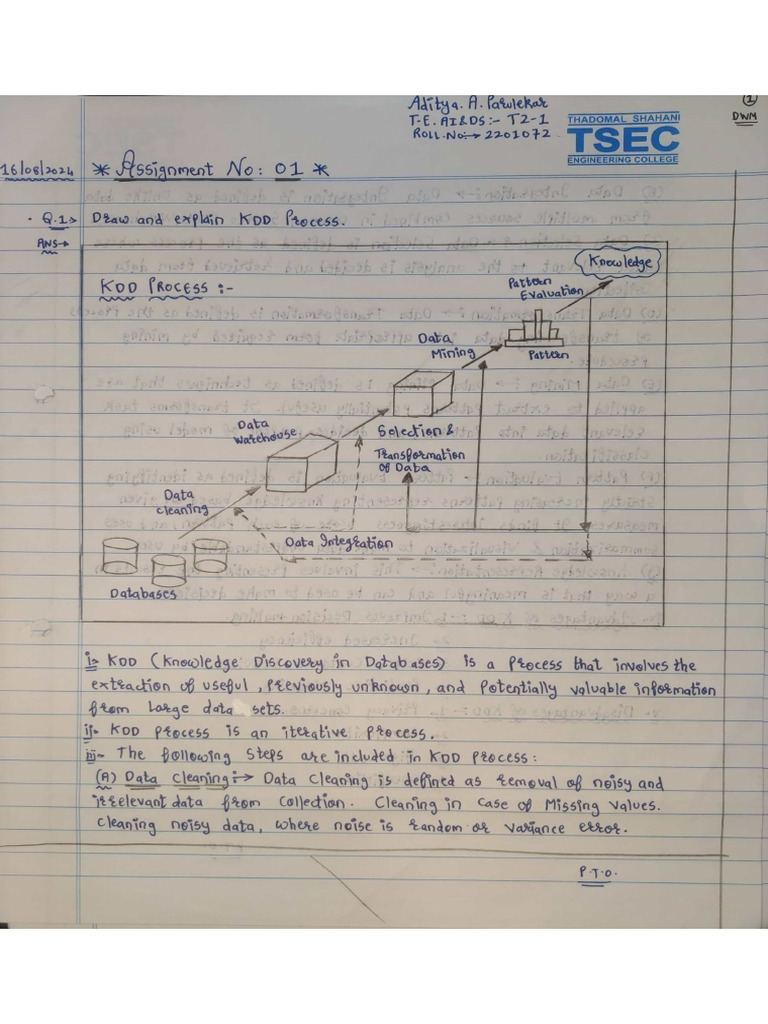 Aditya. A. Parulekar
T.E. AI&DS:- T2-1
ROLL.No:→ 2201072
THADOMAL SHAHANI
TSEC
ENGINEERING COLLEGE
1
DWM
16/08/2024
* Assignment No: 01 *
Q.1> Draw and explain KDD Process.
ANS→
KDD PROCESS :-
Knowledge
Pattern
Evaluation
Data
Mining
Pattern
Data
Warehouse
Selection &
Transformation
of Data
Data
cleaning
Data Integration
Databases
i> KDD (Knowledge Discovery in Databases) is a process that involves the
extraction of useful, previously unknown, and potentially valuable information
from large data sets.
ii> KDD process is an iterative process.
iii> The following steps are included in KDD process:
(A) Data Cleaning:→ Data cleaning is defined as removal of noisy and
irrelevant data from collection. Cleaning in case of Missing values.
cleaning noisy data, where noise is random or variance error.
P.T.O.